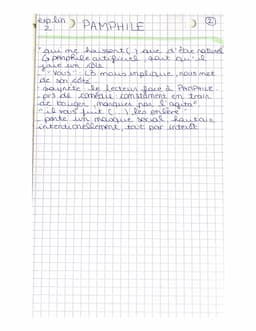 exp lin 2 PAMPHILE 2
"qui me haïssent (,) que d'être naturel
Is pamphile artificiel, sauf qu'il
joue un rôle
"Vous" LB nous implique, nous met
de son côté
saynète le lecteur face à PAMPHILE
prs de comédie constamment en train
de bouger, marquer par l'agita°
"il vous fuit (...) les enlève"
porte un masque social, hautain
intentionellement, tout par intérêt